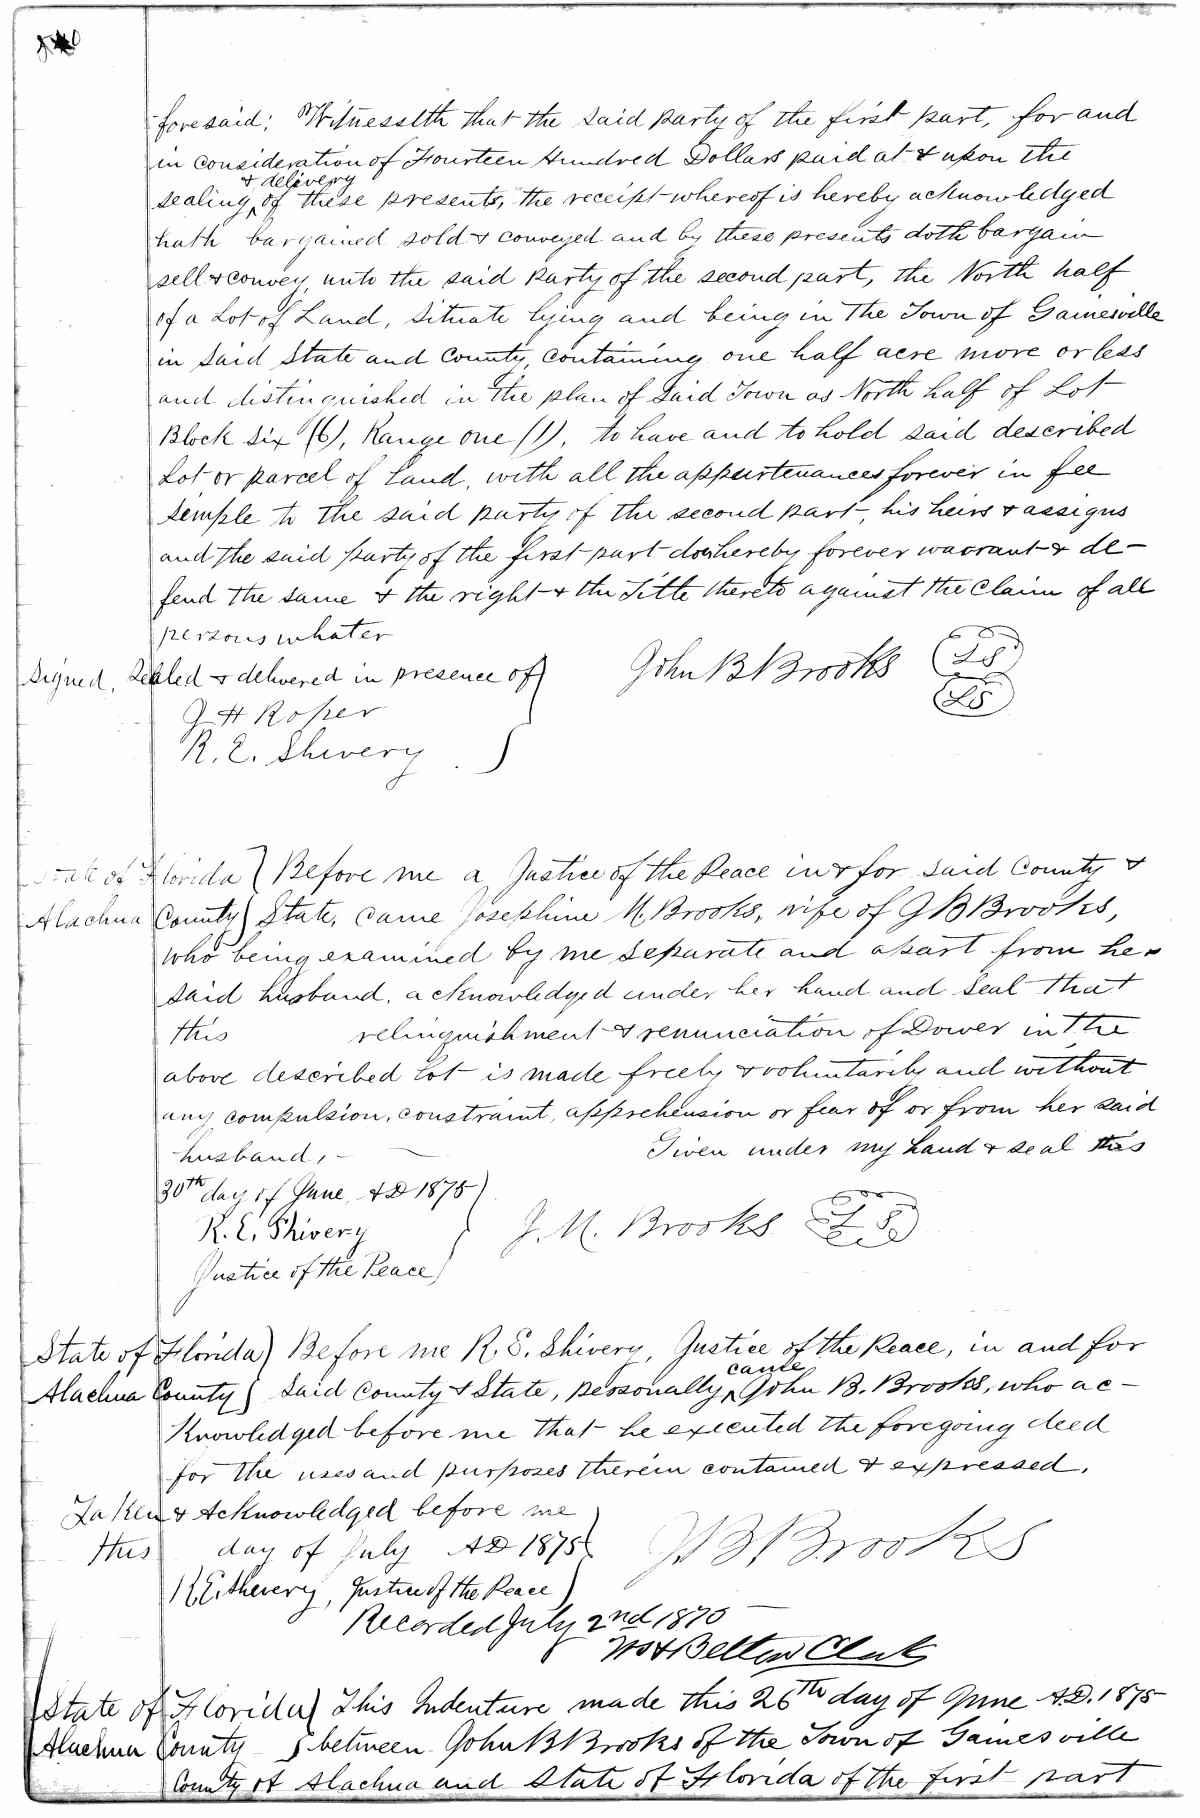 foresaid: Witnesseth that the said party of the first part, for and
in consideration of Fourteen Hundred Dollars paid at & upon the
& delivery
sealing of these presents, the receipt whereof is hereby acknowledged
hath bargained sold & conveyed and by these presents doth bargain
sell & convey, unto the said party of the second part, the North half
of a Lot of Land, situate lying and being in the Town of Gainesville
in said State and County, containing one half acre more or less
and distinguished in the plan of said Town as North half of Lot
Block six (6), Range one (1), to have and to hold said described
Lot or parcel of Land, with all the appurtenances forever in fee
simple to the said party of the second part, his heirs & assigns
and the said party of the first part does hereby forever warrant & de-
fend the same & the right & the Title thereto against the claim of all
persons whater
Signed, Sealed & delivered in presence of John B Brooks LS
LS
J H Roper
R. E. Shivery
State of Florida Before me a Justice of the Peace in & for said County &
Alachua County State, came Josephine M. Brooks, wife of J B Brooks,
who being examined by me separate and apart from her
said husband, acknowledged under her hand and seal that
this relinquishment & renunciation of Dower in the
above described Lot is made freely & voluntarily and without
any compulsion, constraint, apprehension or fear of or from her said
husband, - Given under my hand & seal this
30th day of June, AD 1875
R. E. Shivery J. M. Brooks LS
Justice of the Peace
State of Florida Before me R. E. Shivery, Justice of the Peace, in and for
came
Alachua County said County & State, personally John B. Brooks, who ac-
knowledged before me that he executed the foregoing deed
for the uses and purposes therein contained & expressed.
Taken & Acknowledged before me
this day of July AD 1875 J B Brooks
R E Shivery, Justice of the Peace
Recorded July 2nd 1870
Belton Clerk
State of Florida This Indenture made this 26th day of June A.D. 1875
Alachua County between John B Brooks of the Town of Gainesville
County of Alachua and State of Florida of the first part